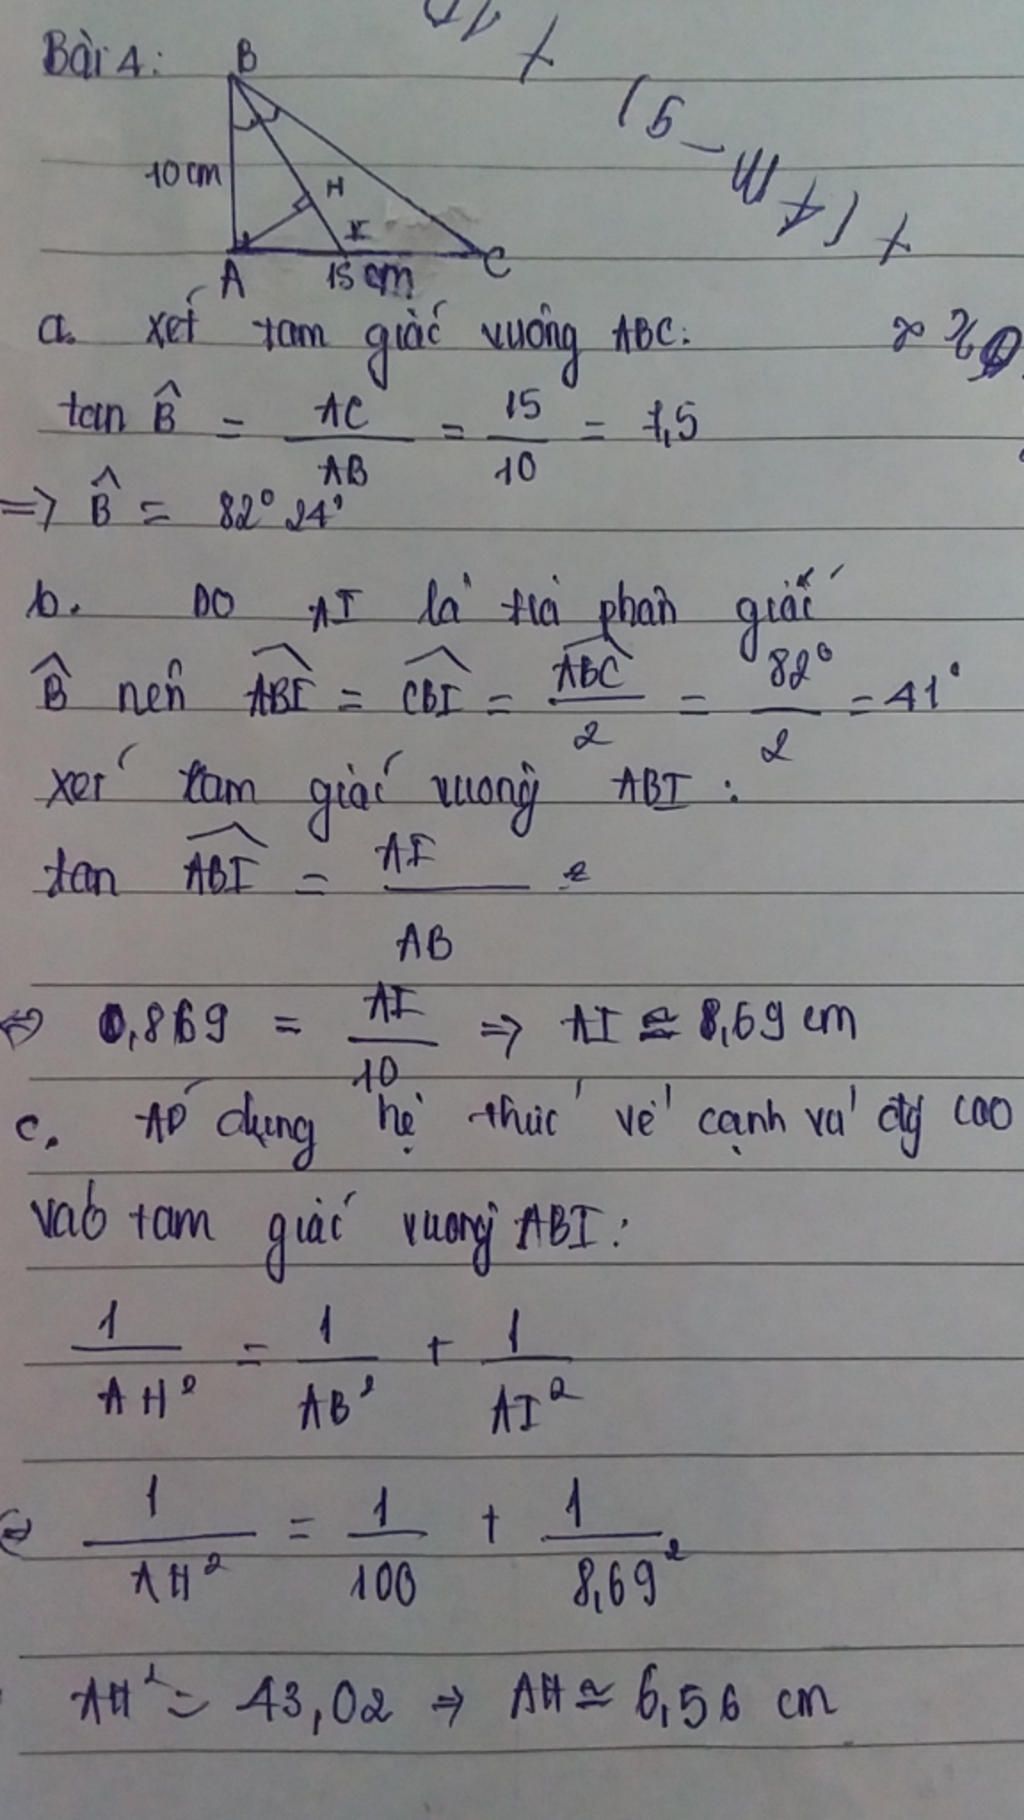 Bài 4:
B
10cm
H
I
A
15 cm
C
a. xét tam giác vuông ABC:
tan B̂ = AC/AB = 15/10 = 1,5
=> B̂ = 82° 24'
b. DO AI là tia phân giác
B̂ nên ABI = CBI = ABC/2 = 82°/2 = 41°
xét tam giác vuông ABI :
tan ABI = AI/AB
<=> 0,869 = AI/10 => AI ≃ 8,69 cm
c. AD dụng hệ thức về cạnh và đg cao
vào tam giác vuông ABI :
1/AH² = 1/AB² + 1/AI²
1/AH² = 1/100 + 1/8,69²
AH² = 43,02 => AH ≃ 6,56 cm